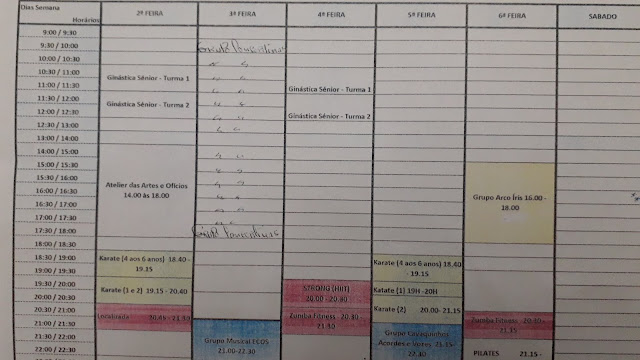 Dias Semana
Horários
2ª FEIRA
3ª FEIRA
4ª FEIRA
5ª FEIRA
6ª FEIRA
SABADO
9:00 / 9:30
9:30 / 10:00
10:00 / 10:30
10:30 / 11:00
Ginástica Sênior - Turma 1
11:00 / 11:30
Ginástica Sênior - Turma 1
11:30 / 12:00
Ginástica Sênior - Turma 2
12:00 / 12:30
Ginástica Sênior - Turma 2
12:30 / 13:00
13:00 / 14:00
14:00 / 15:00
15:00 / 15:30
15:30 / 16:00
Atelier das Artes e Ofícios
14.00 às 18.00
16:00 / 16:30
Grupo Arco Íris 16.00 -
18.00
16:30 / 17:00
17:00 / 17:30
17:30 / 18:00
18:00 / 18:30
18:30 / 19:00
Karate (4 aos 6 anos) 18.40 -
19.15
Karate (4 aos 6 anos) 18.40
- 19.15
19:00 / 19:30
19:30 / 20:00
Karate (1 e 2) 19.15 - 20.40
STRONG (HIIT)
20.00 - 20.30
Katate (1) 19H -20H
20:00 / 20:30
20:30 / 21:00
Zumba Fitness - 20.30
- 21.30
Karate (2) 20.00- 21.15
Zumba Fitness - 20.30
- 21.15
21:00 / 21:30
21:30 / 22:00
Grupo Musical ECOS
21.00-22.30
Grupo Cavaquinhos
Acordes e Vozes 21.15
- 22.30
PILATES 21.15 -
22:00 / 22:30